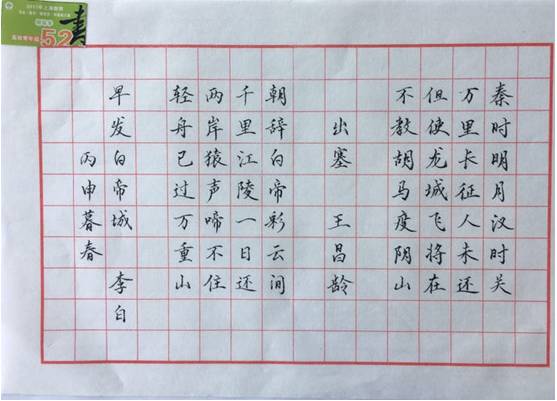 秦时明月汉时关
万里长征人未还
但使龙城飞将在
不教胡马度阴山
出塞 王昌龄
朝辞白帝彩云间
千里江陵一日还
两岸猿声啼不住
轻舟已过万重山
早发白帝城 李白
丙申暮春
52